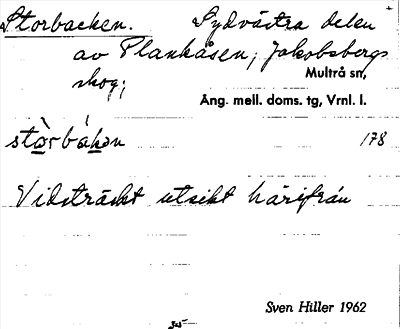 Storbacken. Sydvästra delen
av Plankåsen, Jakobsbergs
skog;
Multrå sn,
Ång. mell. doms. tg, Vrnl. l.
stòrbákən 178
Vidsträckt utsikt härifrån
Sven Hiller 1962